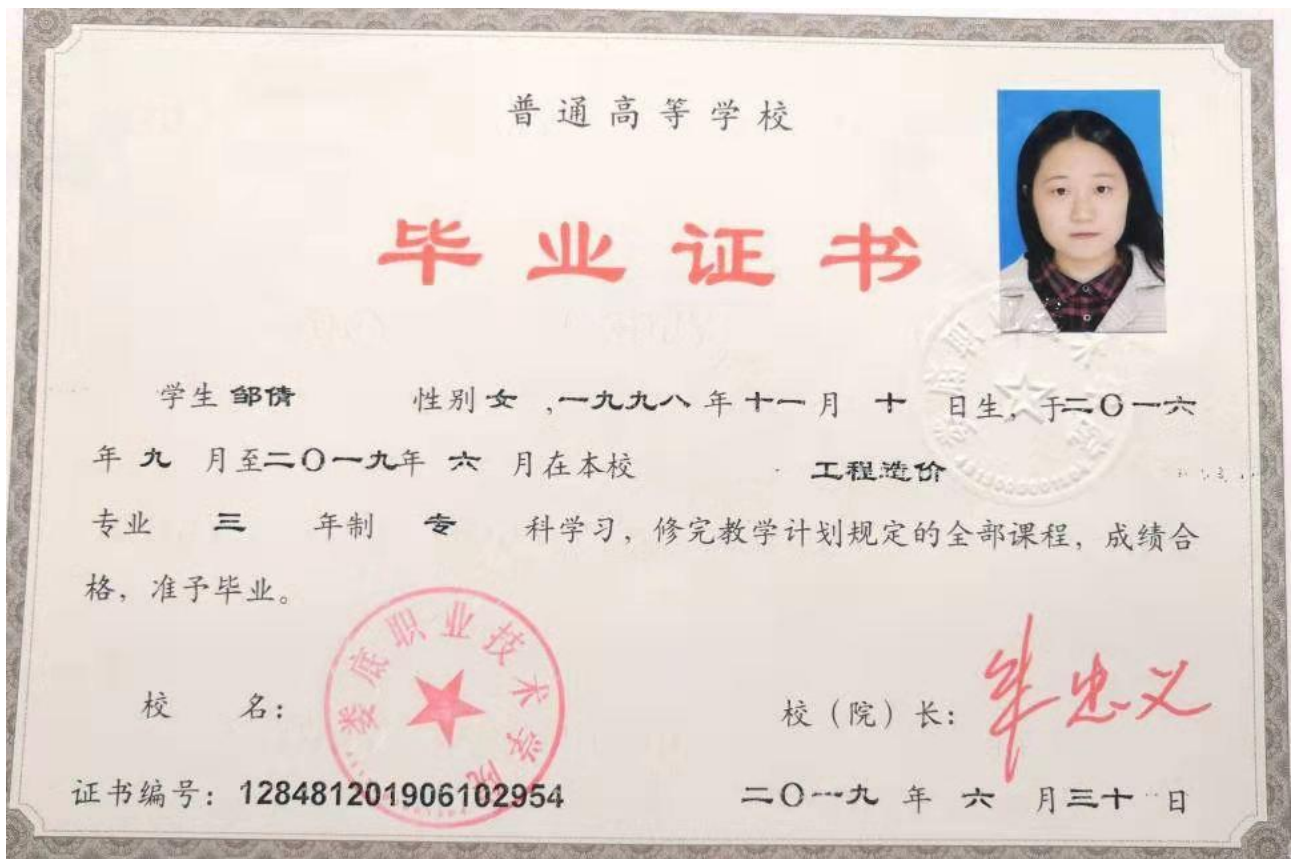 普通高等学校
毕业证书
学生 邹倩 性别 女 ,一九九八 年 十一 月 十 日生, 于二〇一六
年 九 月至二〇一九年 六 月在本校 工程造价
专业 三 年制 专 科学习, 修完教学计划规定的全部课程, 成绩合
格, 准予毕业。
娄底职业技术学院
校 名: 校(院)长:
证书编号: 128481201906102954 二〇一九 年 六 月三十 日